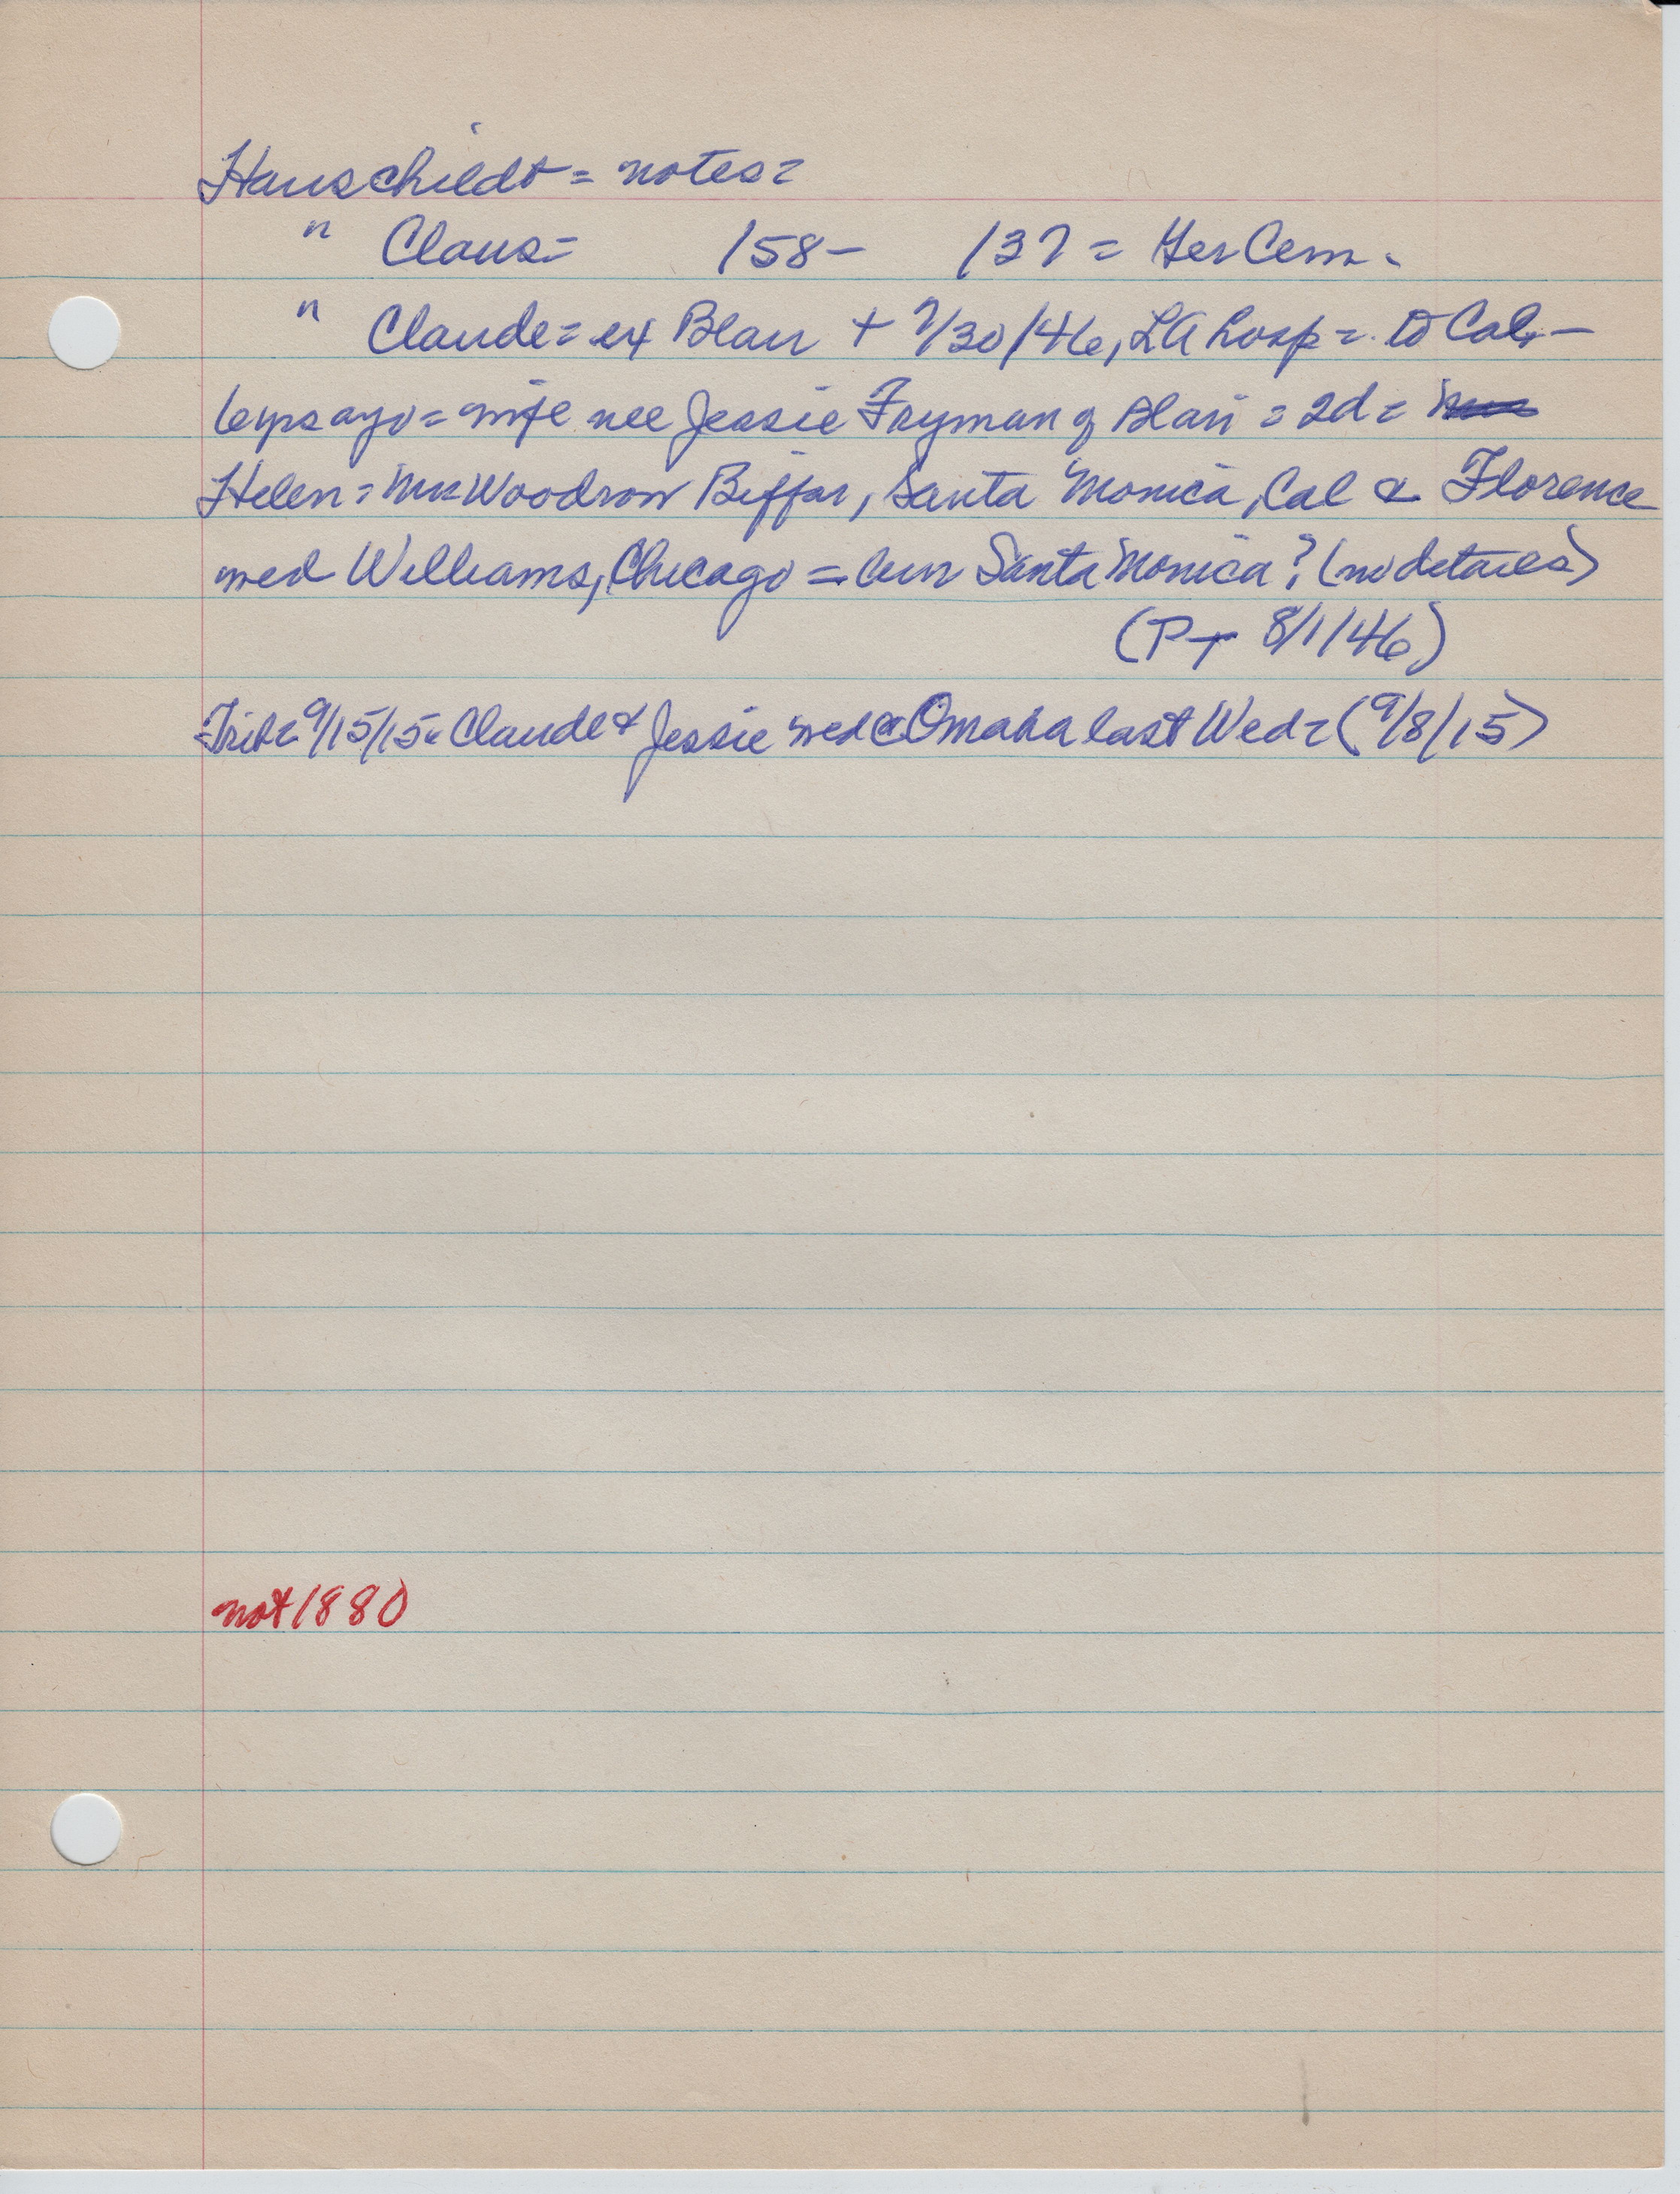 Hauschildt = notes =
" Claus = /58 - /37 = Ger Cem.
" Claude = ex Blair + 7/30/46, LA hosp = to Cal. -
6 yrs ago = wife nee Jessie Fryman of Blair = 2d =
Helen = Mrs Woodrow Biffar, Santa Monica, Cal & Florence
med Williams, Chicago = bur Santa Monica? (no details)
(PT 8/1/46)
Trib = 9/15/15 = Claude & Jessie med @ Omaha last Wed = (9/8/15)
not 1880